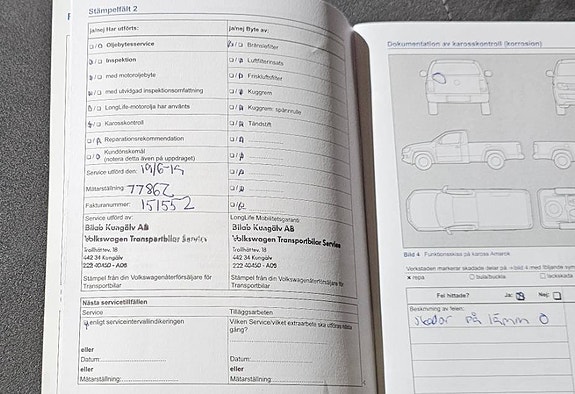 Stämpelfält 2
ja/nej Har utförts:
ja/nej Byte av:
Oljebytesservice
Bränslefilter
Inspektion
Luftfilterinsats
med motoroljebyte
Friskluftsfilter
med utvidgad inspektionsomfattning
Kuggrem
LongLife-motorolja har använts
Kuggrem: spännrulle
Karosskontroll
Tändstift
Reparationsrekommendation
Kundönskemål
(notera detta även på uppdraget)
Service utförd den: 19/6-19
Mätarställning: 77862
Fakturanummer: 151552
Service utförd av:
Bilab Kungälv AB
Volkswagen Transportbilar Service
Trollhättev. 18
442 34 Kungälv
Stämpel från din Volkswagenåterförsäljare för
Transportbilar
LongLife Mobilitetsgaranti:
Bilab Kungälv AB
Volkswagen Transportbilar Service
Trollhättev. 18
442 34 Kungälv
Stämpel från din Volkswagenåterförsäljare för
Transportbilar
Nästa servicetillfällen
Service
Tilläggsarbeten
enligt serviceintervallindikeringen
Vilken Service/vilket extraarbete ska utföras nästa
gång?
eller
Datum:
eller
Mätarställning:
eller
Datum:
eller
Mätarställning:
Dokumentation av karosskontroll (korrosion)
Bild 4 Funktionsskiss på kaross Amarok
Verkstaden markerar skadade delar på bild 4 med följande
x repa
bula/buckla
lackskada
Fel hittade? Ja: Nej:
Beskrivning av felen:
skador på lämm O